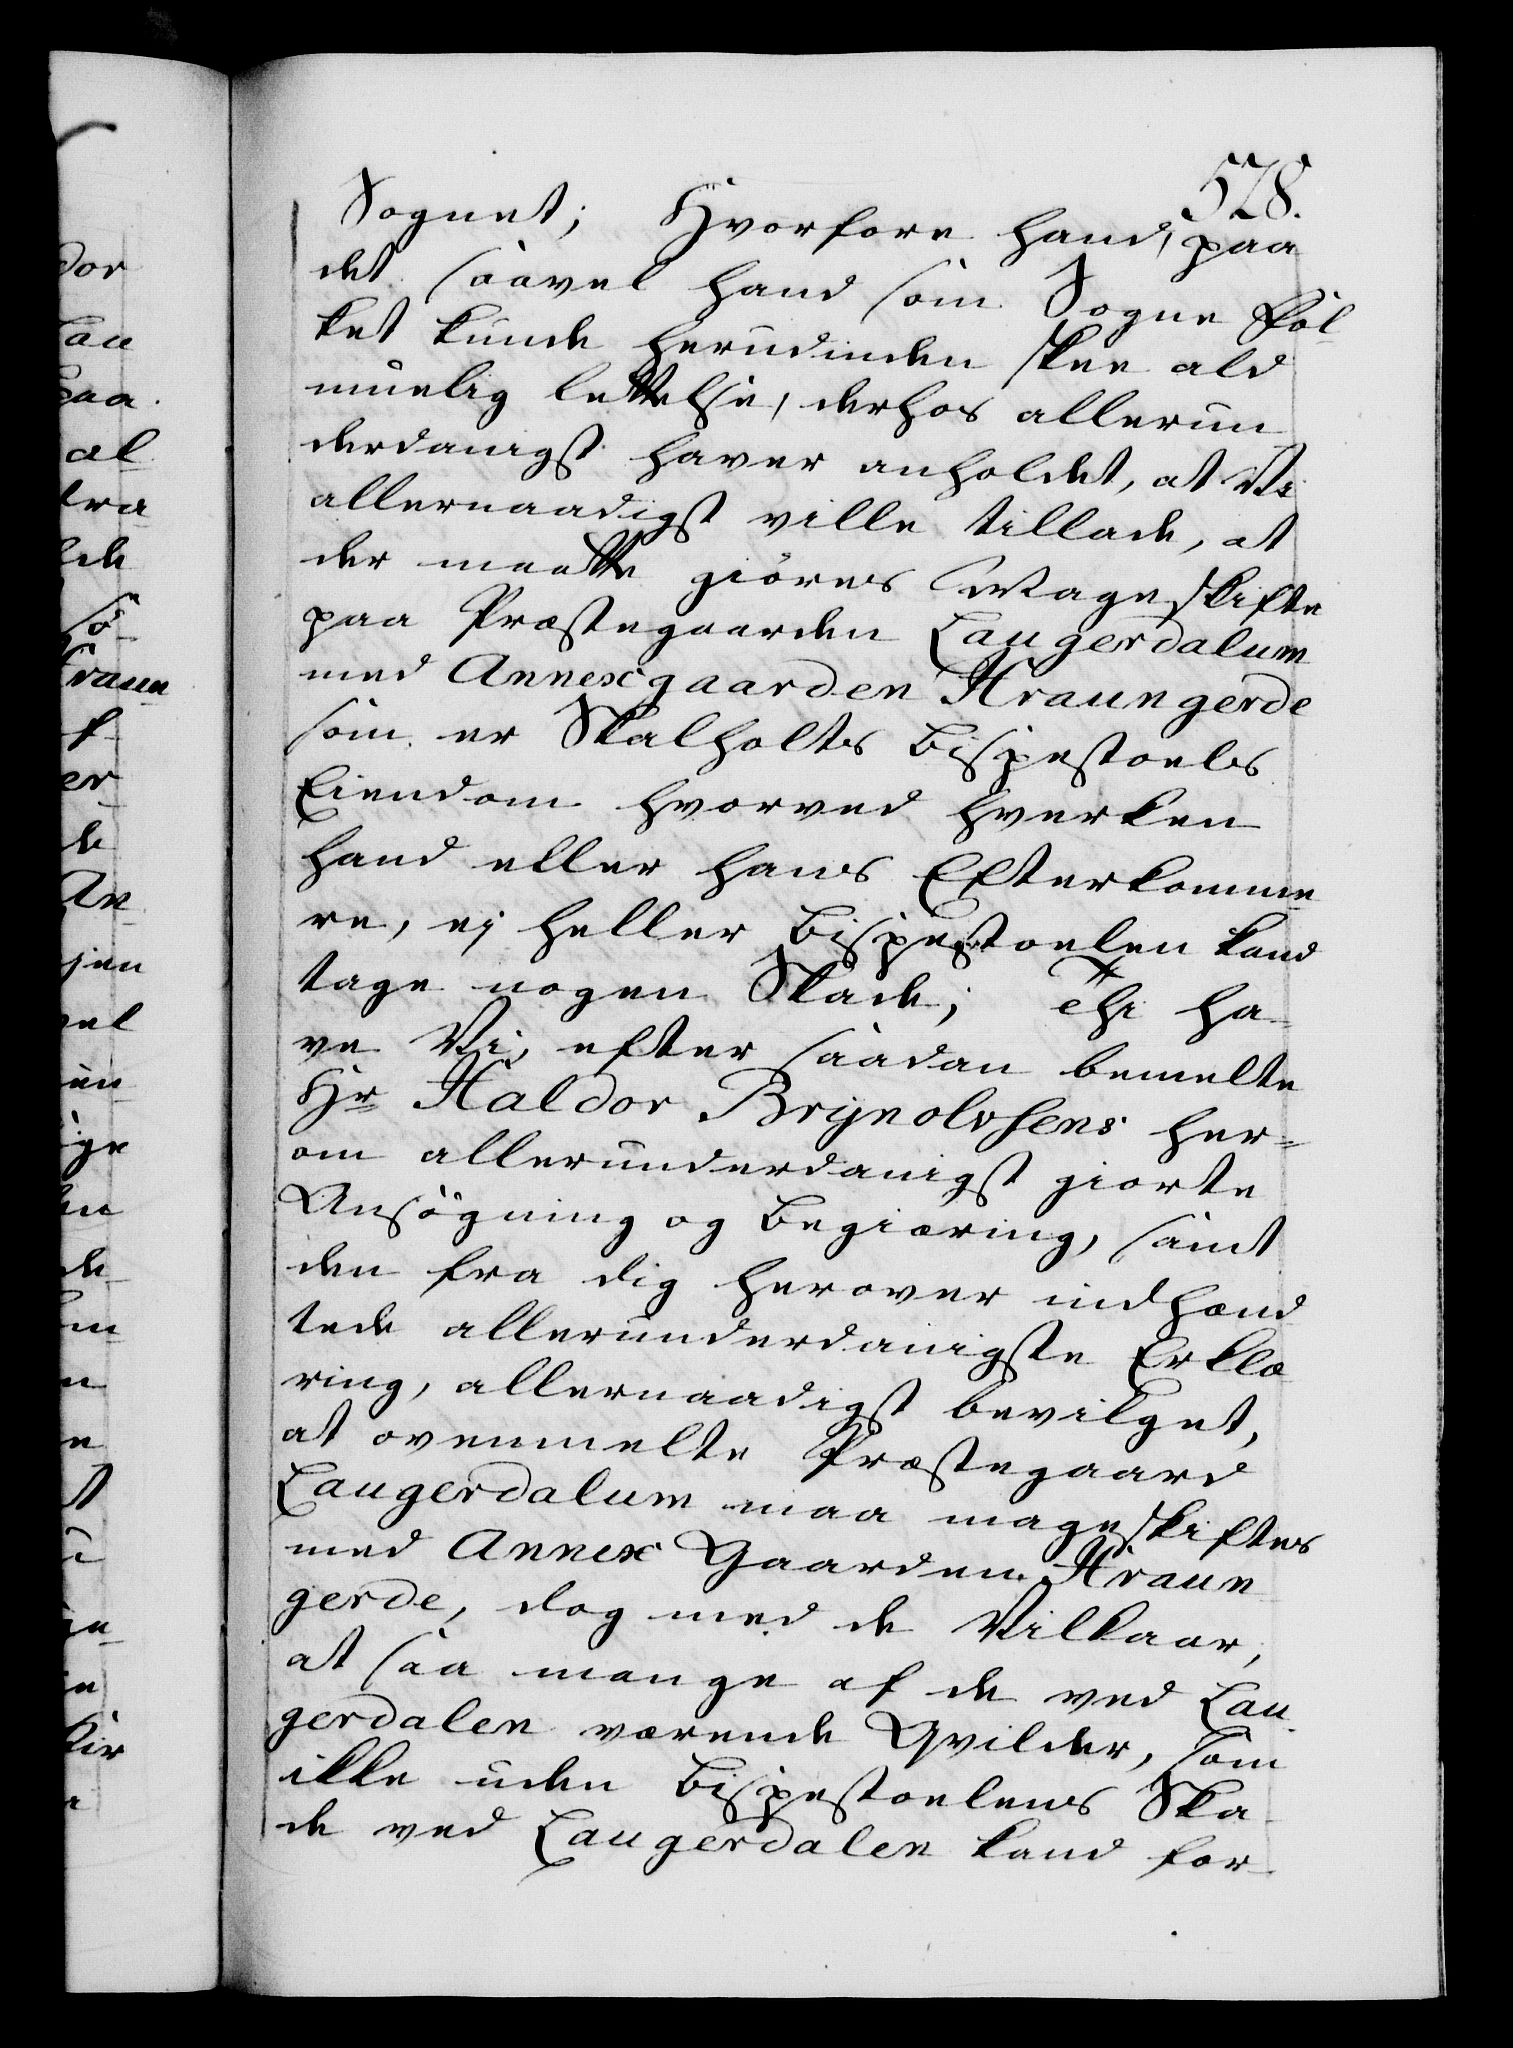 578.
Sognet; Hvorfore hand, paa
det saavel hand som Sogne fol-
ket kunde herudinden skee ald
muelig lettelse, derhos allerun
derdanigst haver anholdet, at Vi
allernaadigst ville tillade, at
der maatte giöres Mageskifte
paa Præstegaarden Laugerdalum
med Annexgaarden Hraungerde
som er Skalholts Bispestoels
Eiendom hvorved hverken
hand eller hans Efterkomme
re, ej heller Bispestoelen kand
tage nogen Skade; Thi ha-
ve Vi, efter saadan bemelte
Hr Haldor Brijnolvsens her-
om allerunderdanigst giorte
Ansögning og Begiæring, samt
den fra dig herover indhæn
tede allerunderdanigste Erklæ
ring, allernaadigst bevilget,
at ovenmelte Præstegaard
Laugerdalum maa mageskiftes
med Annex Gaarden Hraun
gerde, dog med de Vilkaar,
at saa mange af de ved Lau-
gerdalen værende Qvilder, som
ikke uden Bispestoelens Ska-
de ved Laugerdalen kand for-
dor
Lau
paa
al
dra
lde
sö-
Hraun
f
er
de
An
jen
vel
un-
ige
en
de-
om
n
e
t
i
ge-
ie
kir
r